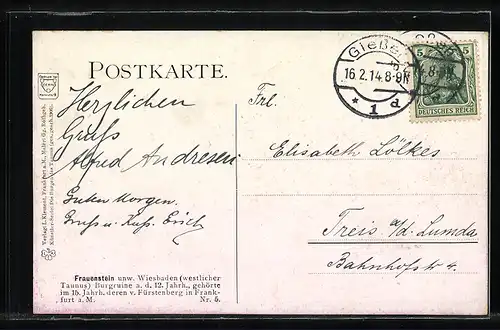 POSTKARTE.
Herzlichen
Gruß
Alfred Andresen
Guten Morgen.
Gruß u. Kuß. Erich
Frauenstein unw. Wiesbaden (westlicher
Taunus) Burgruine a. d. 12. Jahrh., gehörte
im 15. Jahrh. deren v. Fürstenberg in Frank-
furt a. M. Nr. 5.
Verlag: L. Klement, Frankfurt a. M.
Gießen
16.2.14.8-9N
* 1 d
5 5
DEUTSCHES REICH
Frl.
Elisabeth Lölkes
Treis a/d. Lumda
Bahnhofstr. 4.